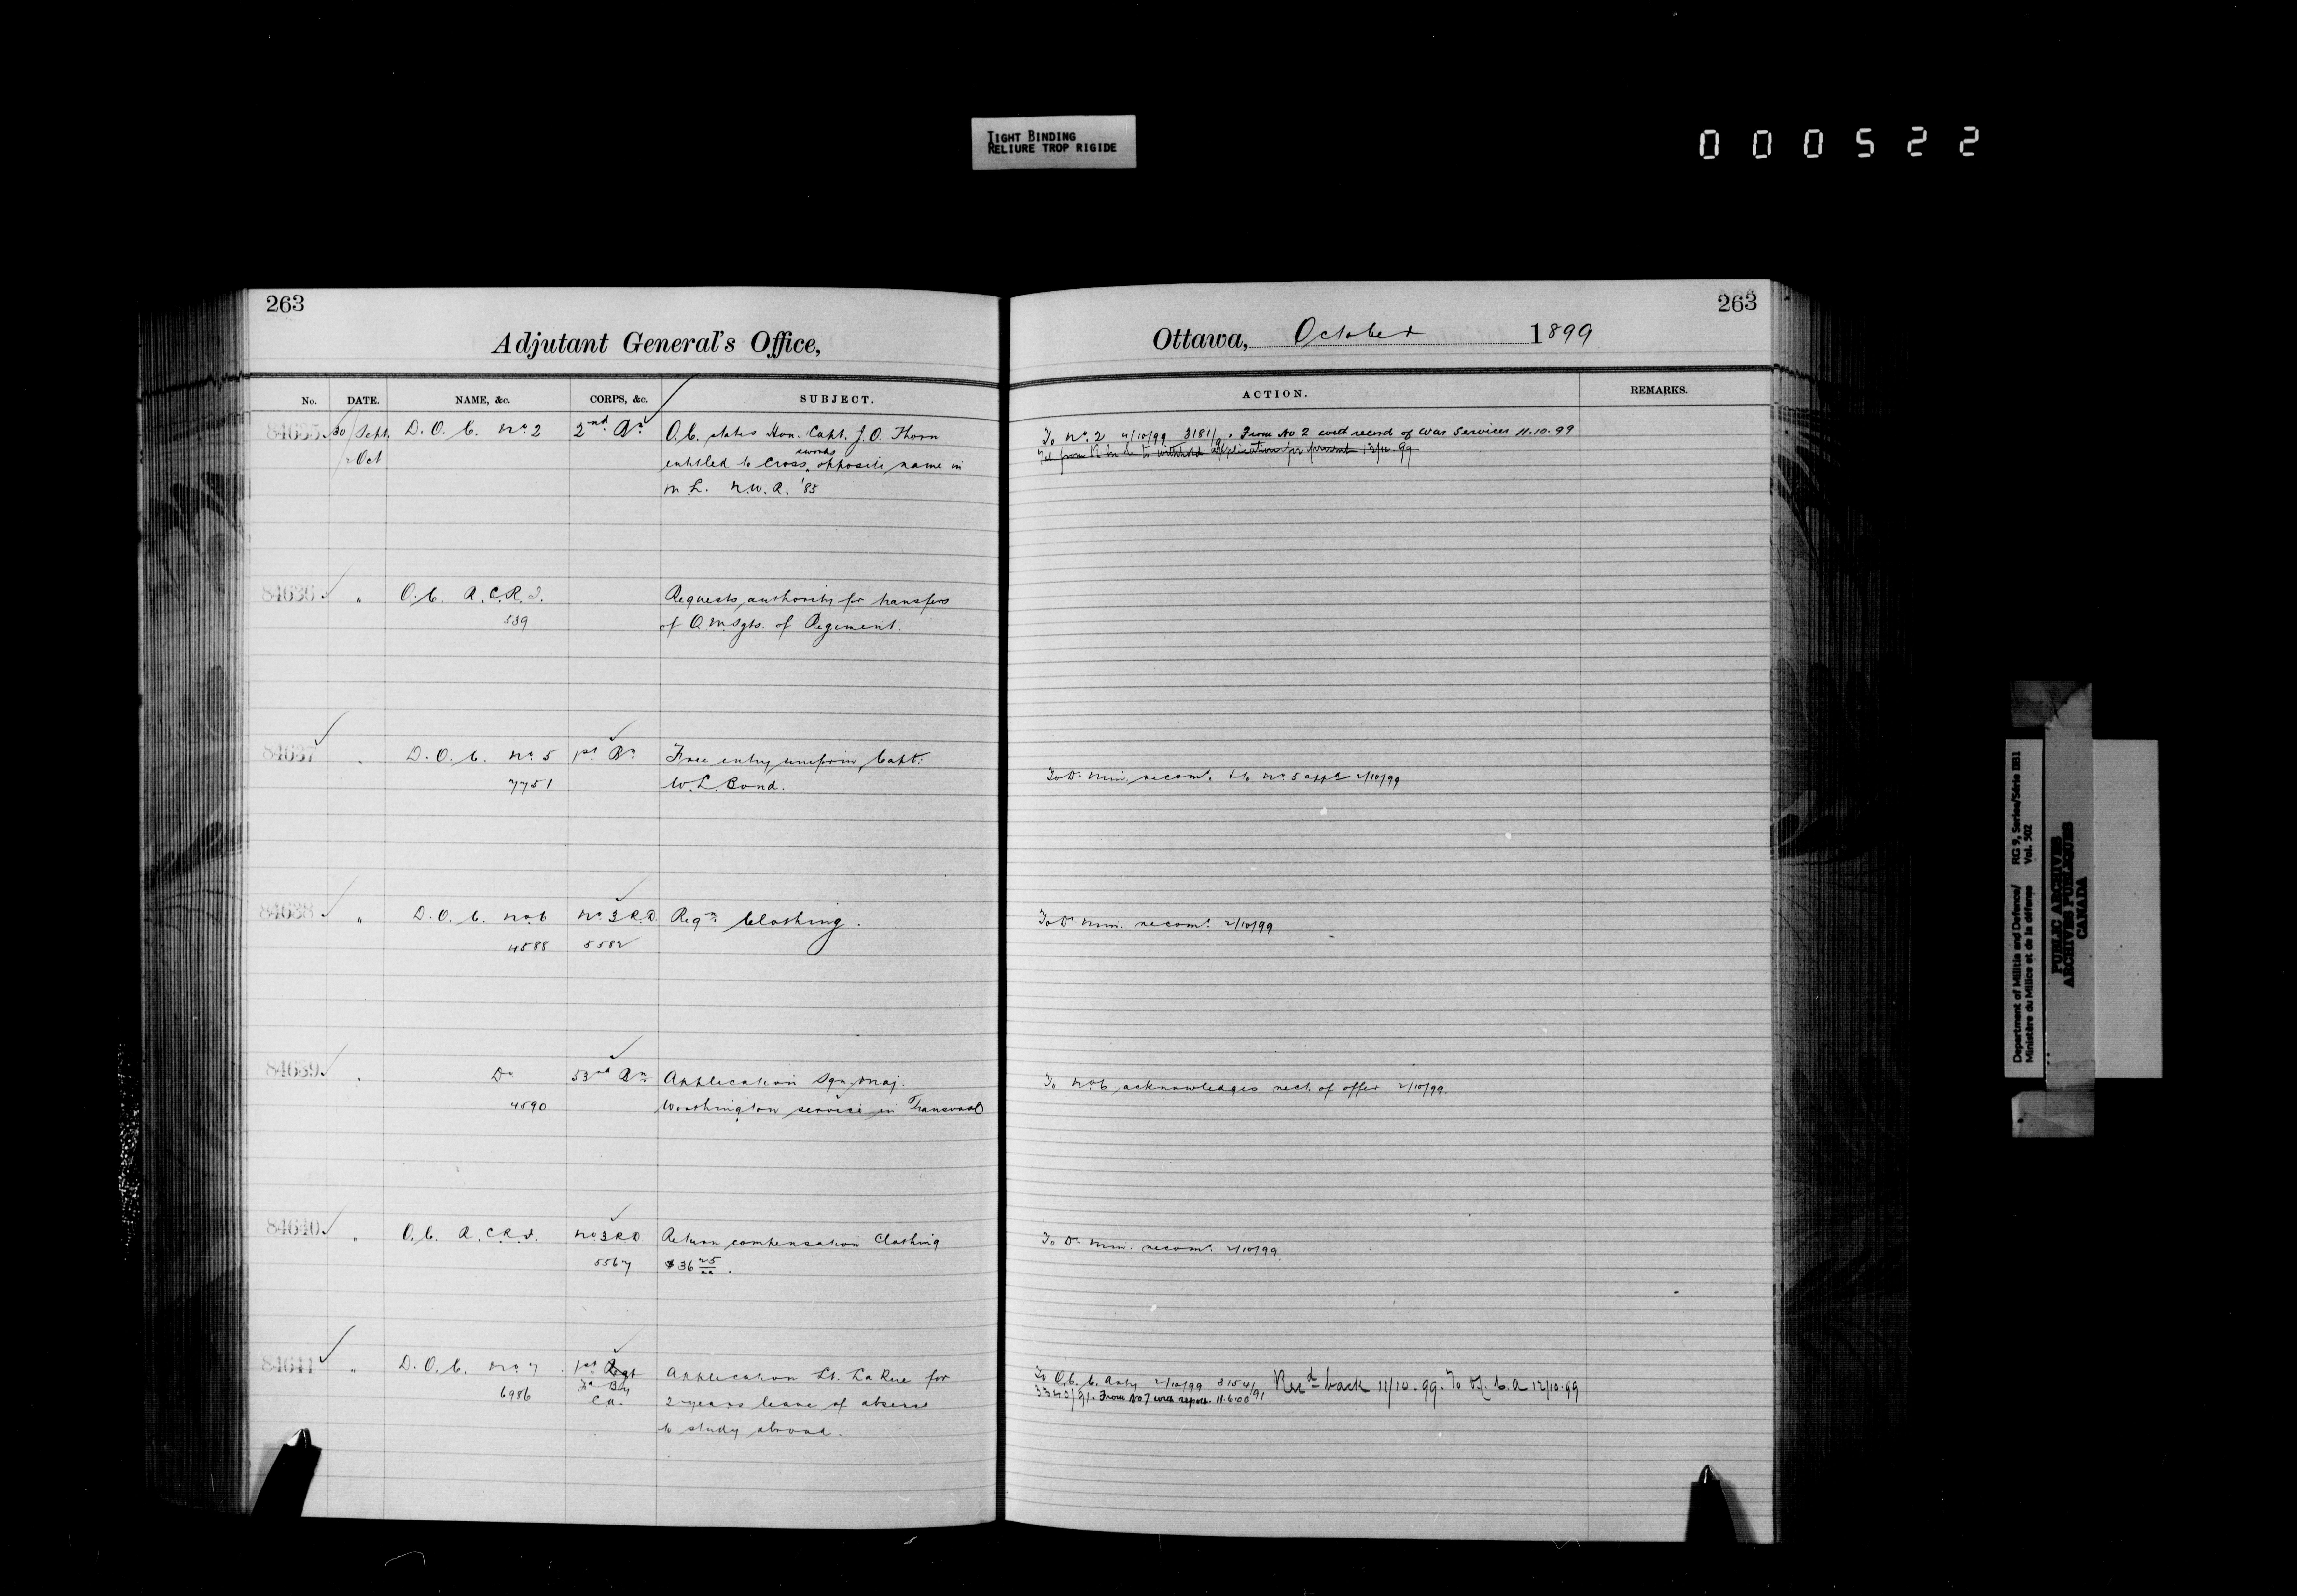 TIGHT BINDING
RELIURE TROP RIGIDE
000522
263
Adjutant General's Office,
No. DATE. NAME, &c. CORPS, &c. SUBJECT.
84635 30/Sept. D.O.C. No. 2 2nd Bn O.C. states Hon. Capt. J.O. Thorn
2 Oct entitled to Cross swords opposite name in
M.L. N.W.R. '85
84636 " O.C. R.C.R.I. Requests authority for transfers
539 of Q.M.Sgts. of Regiment.
84637 " D.O.C. No. 5 1st Bn Free entry uniform, Capt.
7751 W.L. Bond.
84638 " D.O.C. No. 6 No. 3 R.D. Reqn. Clothing.
4588 5582
84639 " Do 53rd Bn. Application Sgn. Maj.
4590 Worthington service in Transvaal
84640 " O.C. R.C.R.I. No 3 R D Return compensation Clothing
5567 $36
84641 " D.O.C. No. 7 1st Application Lt. LaRue for
6986 Fd Bty 2 years leave of absence
C.A. to study abroad.
263
Ottawa, October 1899
ACTION. REMARKS.
To No. 2 4/10/99 3181/9. From No 2 with record of War Services 11.10.99
Tel from to withhold application for present
To D. Min. recomd. to No. 5 2/10/99
To D. Min. recomd. 2/10/99
To No 6 acknowledges rect. of offer 2/10/99.
To D. Min. recomd. 2/10/99.
To O.C. C. Arty 2/10/99 Recd back 11/10.99. To 12/10.99
3340/91. From No 7 with report. 11.6.00
Department of Militia and Defence/ RG 9, Series/Série IIB1
Ministère du Milice et de la défense Vol. 502
PUBLIC ARCHIVES
ARCHIVES PUBLIQUES
CANADA